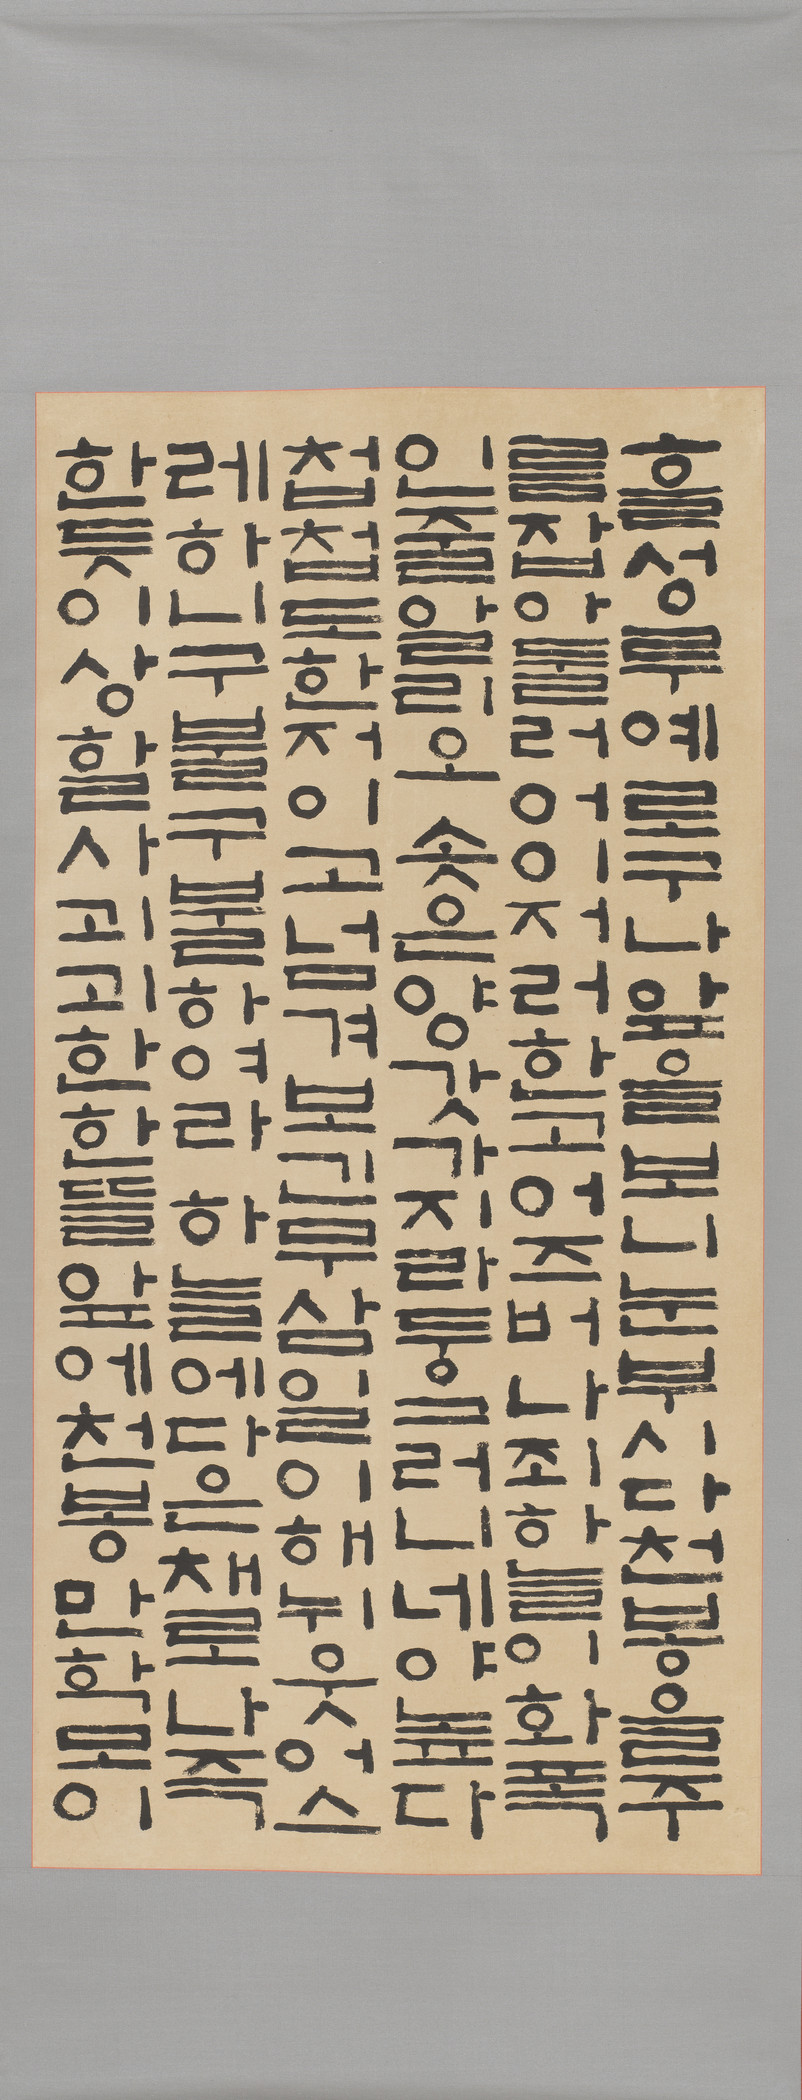 흘성루예로구나앞을보니눈부시다천봉을주
를잡아둘러어이저러한고어즈버나죄하늘이화폭
인줄알리오솟은양갓가지라둥그러니네야높다
첩첩도한저이고넘겨보긴무삼일이해뉘웃어스
레하니구불구불하여라하늘에다은채로나즉
한듯이상할사괴괴한한뜰앞에천봉만학모이